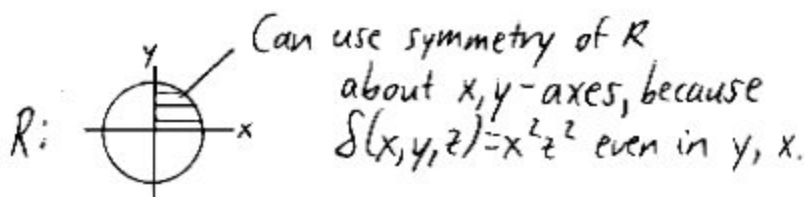 Can use symmetry of R
y
about x, y-axes, because
R:
x
δ(x,y,z)=x²z² even in y, x.